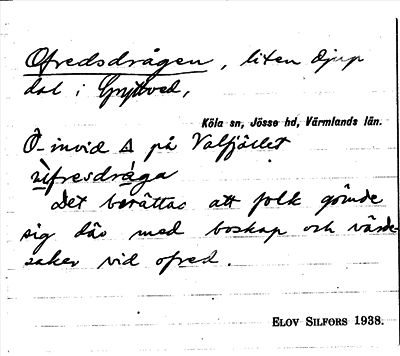 Ofredsdrågen, liten djup
dal i Gryttved,
Köla sn, Jösse hd, Värmlands län.
Ö invid Δ på Valfjället
ùfresdråga
Det berättas att folk gömde
sig där med boskap och värde-
saker vid ofred.
ELOV SILFORS 1938.